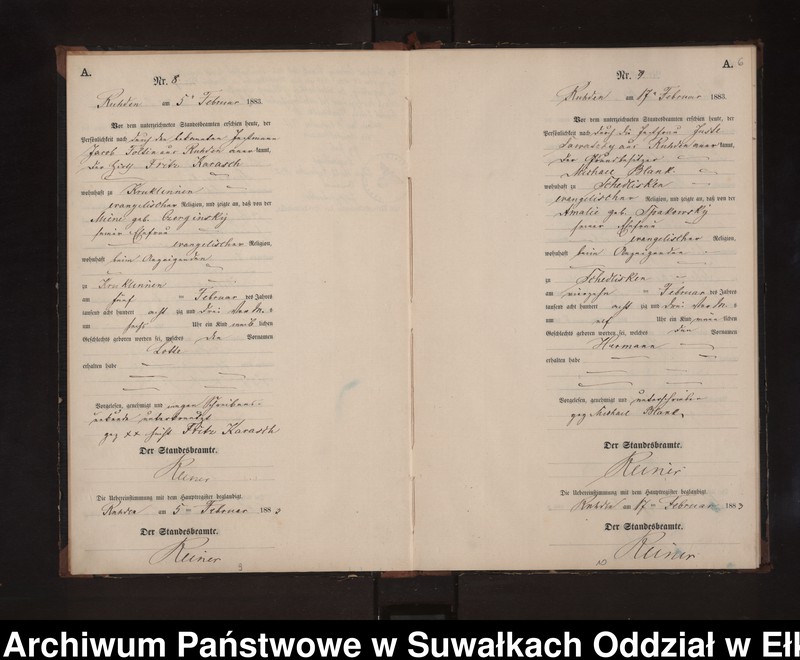 A.
Nr. 8.
Ruhden am 5ᵗ Februar 1883.
Vor dem unterzeichneten Standesbeamten erschien heute, der
Persönlichkeit nach durch den bekannten
Jacob aus Ruhden anerkannt,
der Fritz Karasch
wohnhaft zu Kruklinnen
evangelischer Religion, und zeigte an, daß von der
geb.
seiner Ehefrau
evangelischer Religion,
wohnhaft beim Anzeigenden
zu Kruklinnen
am fünf = Februar des Jahres
tausend acht hundert acht zig und drei
um sechs Uhr ein Kind weib lichen
Geschlechts geboren worden sei, welches den Vornamen
Lotte
erhalten habe
Vorgelesen, genehmigt und wegen Schreibens-
unkunde unterkreuzt
gez xx heißt Fritz Karasch
Der Standesbeamte.
Reiner
Die Uebereinstimmung mit dem Hauptregister beglaubigt.
Ruhden am 5 = Februar 1883
Der Standesbeamte.
Reiner
A. 6
Nr. 9.
Ruhden am 17ᵗ Februar 1883.
Vor dem unterzeichneten Standesbeamten erschien heute, der
Persönlichkeit nach durch die
aus Ruhden anerkannt,
der Grundbesitzer
Michael Blank
wohnhaft zu Schedlisken
evangelischer Religion, und zeigte an, daß von der
Amalie geb.
seiner Ehefrau
evangelischer Religion,
wohnhaft beim Anzeigenden
zu Schedlisken
am vierzehn = Februar des Jahres
tausend acht hundert acht zig und drei
um elf Uhr ein Kind männ lichen
Geschlechts geboren worden sei, welches den Vornamen
Hermann
erhalten habe
Vorgelesen, genehmigt und unterschrieben
gez Michael Blank.
Der Standesbeamte.
Reiner
Die Uebereinstimmung mit dem Hauptregister beglaubigt.
Ruhden am 17 = Februar 1883
Der Standesbeamte.
Reiner
Archiwum Państwowe w Suwałkach Oddział w Ełk